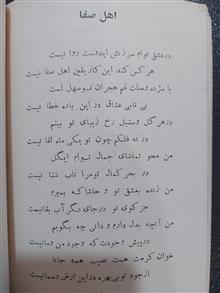 اهل صفا
در عشق توام سرزنش ایدوست روا نیست
هر کس کند این کار یقین اهل صفا نیست
با مژده وصلت غم هجران تو سهل است
بی تابی عشاق در این باده خطا نیست
در هر گل و سنبل رخ زیبای تو بینم
در نه فلکم چون تو یکی ماه لقا نیست
من محو تماشای جمال توام ایگل
در بحر کمال تو مرا تاب شنا نیست
من زنده بعشق تو و حاشا که بمیرم
جز کوی تو در جای دگر آب بقا نیست
من آنچه بدل دارم و دانی چه بگویم
در پیش وجودت که وجود من و ما نیست
خوان کرمت هست نصیب همه جانا
از جود تو بی بهره در این ارض و سما نیست